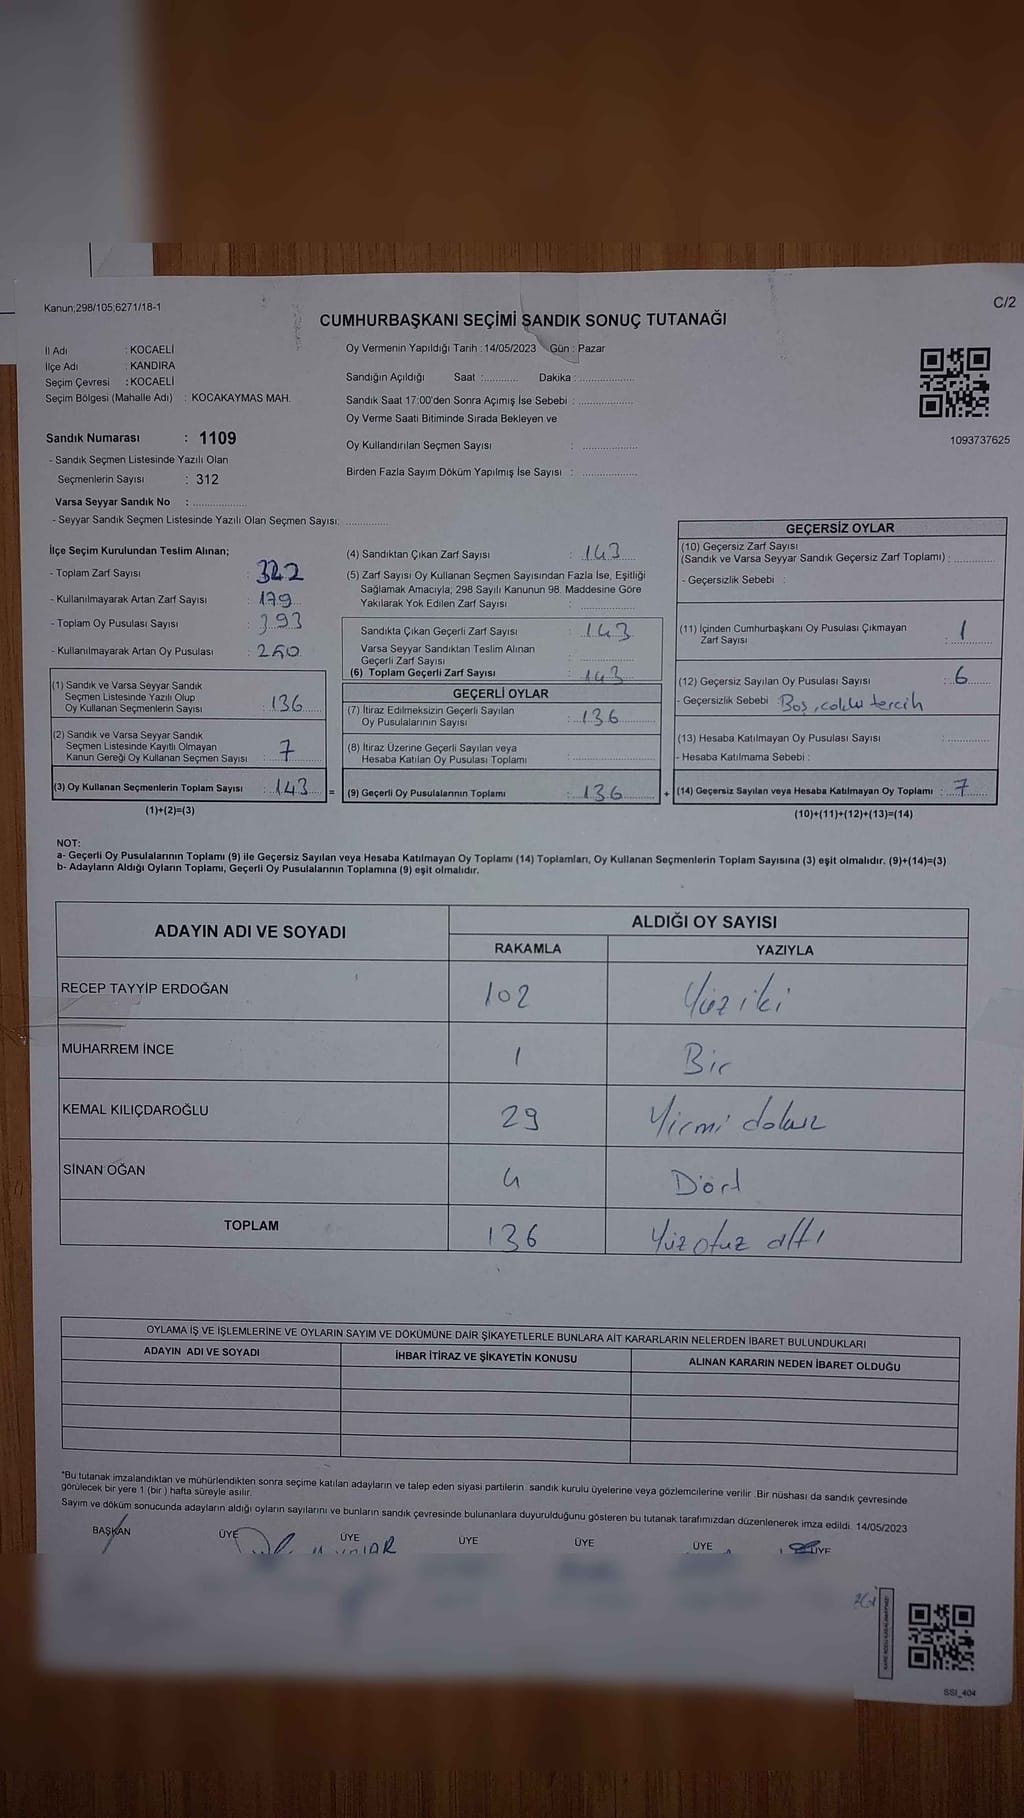 Kanun;298/105,6271/18-1
C/2
CUMHURBAŞKANI SEÇİMİ SANDIK SONUÇ TUTANAĞI
İl Adı : KOCAELİ
İlçe Adı : KANDIRA
Seçim Çevresi : KOCAELİ
Seçim Bölgesi (Mahalle Adı) : KOCAKAYMAS MAH.
Sandık Numarası : 1109
- Sandık Seçmen Listesinde Yazılı Olan
Seçmenlerin Sayısı : 312
Varsa Seyyar Sandık No : ..................
- Seyyar Sandık Seçmen Listesinde Yazılı Olan Seçmen Sayısı: ..............
Oy Vermenin Yapıldığı Tarih :14/05/2023 Gün : Pazar
Sandığın Açıldığı Saat :............ Dakika : ..................
Sandık Saat 17:00'den Sonra Açımış İse Sebebi : ..................
Oy Verme Saati Bitiminde Sırada Bekleyen ve
Oy Kullandırılan Seçmen Sayısı : ..................
Birden Fazla Sayım Döküm Yapılmış İse Sayısı : ..................
1093737625
İlçe Seçim Kurulundan Teslim Alınan;
- Toplam Zarf Sayısı : 322
- Kullanılmayarak Artan Zarf Sayısı : 179
- Toplam Oy Pusulası Sayısı : 393
- Kullanılmayarak Artan Oy Pusulası : 250
(1) Sandık ve Varsa Seyyar Sandık
Seçmen Listesinde Yazılı Olup
Oy Kullanan Seçmenlerin Sayısı : 136
(2) Sandık ve Varsa Seyyar Sandık
Seçmen Listesinde Kayıtlı Olmayan
Kanun Gereği Oy Kullanan Seçmen Sayısı : 7
(3) Oy Kullanan Seçmenlerin Toplam Sayısı : 143 =
(1)+(2)=(3)
(4) Sandıktan Çıkan Zarf Sayısı : 143
(5) Zarf Sayısı Oy Kullanan Seçmen Sayısından Fazla İse, Eşitliği
Sağlamak Amacıyla; 298 Sayılı Kanunun 98. Maddesine Göre
Yakılarak Yok Edilen Zarf Sayısı : ..................
Sandıkta Çıkan Geçerli Zarf Sayısı : 143
Varsa Seyyar Sandıktan Teslim Alınan
Geçerli Zarf Sayısı : ..................
(6) Toplam Geçerli Zarf Sayısı : 143
GEÇERLİ OYLAR
(7) İtiraz Edilmeksizin Geçerli Sayılan
Oy Pusulalarının Sayısı : 136
(8) İtiraz Üzerine Geçerli Sayılan veya
Hesaba Katılan Oy Pusulası Toplamı : ..................
(9) Geçerli Oy Pusulalarının Toplamı : 136 +
GEÇERSİZ OYLAR
(10) Geçersiz Zarf Sayısı
(Sandık ve Varsa Seyyar Sandık Geçersiz Zarf Toplamı) : ............
- Geçersizlik Sebebi :
(11) İçinden Cumhurbaşkanı Oy Pusulası Çıkmayan
Zarf Sayısı : 1
(12) Geçersiz Sayılan Oy Pusulası Sayısı : 6
- Geçersizlik Sebebi : Boş, çoklu tercih
(13) Hesaba Katılmayan Oy Pusulası Sayısı : ............
- Hesaba Katılmama Sebebi :
(14) Geçersiz Sayılan veya Hesaba Katılmayan Oy Toplamı : 7
(10)+(11)+(12)+(13)=(14)
NOT:
a- Geçerli Oy Pusulalarının Toplamı (9) ile Geçersiz Sayılan veya Hesaba Katılmayan Oy Toplamı (14) Toplamları, Oy Kullanan Seçmenlerin Toplam Sayısına (3) eşit olmalıdır. (9)+(14)=(3)
b- Adayların Aldığı Oyların Toplamı, Geçerli Oy Pusulalarının Toplamına (9) eşit olmalıdır.
ADAYIN ADI VE SOYADI ALDIĞI OY SAYISI
RAKAMLA YAZIYLA
RECEP TAYYİP ERDOĞAN 102 Yüziki
MUHARREM İNCE 1 Bir
KEMAL KILIÇDAROĞLU 29 Yirmi dokuz
SİNAN OĞAN 4 Dört
TOPLAM 136 Yüzotuz altı
OYLAMA İŞ VE İŞLEMLERİNE VE OYLARIN SAYIM VE DÖKÜMÜNE DAİR ŞİKAYETLERLE BUNLARA AİT KARARLARIN NELERDEN İBARET BULUNDUKLARI
ADAYIN ADI VE SOYADI İHBAR İTİRAZ VE ŞİKAYETİN KONUSU ALINAN KARARIN NEDEN İBARET OLDUĞU
*Bu tutanak imzalandıktan ve mühürlendikten sonra seçime katılan adayların ve talep eden siyasi partilerin sandık kurulu üyelerine veya gözlemcilerine verilir .Bir nüshası da sandık çevresinde
görülecek bir yere 1 (bir ) hafta süreyle asılır.
Sayım ve döküm sonucunda adayların aldığı oyların sayılarını ve bunların sandık çevresinde bulunanlara duyurulduğunu gösteren bu tutanak tarafımızdan düzenlenerek imza edildi. 14/05/2023
BAŞKAN ÜYE ÜYE ÜYE ÜYE ÜYE ÜYE
SSI_404